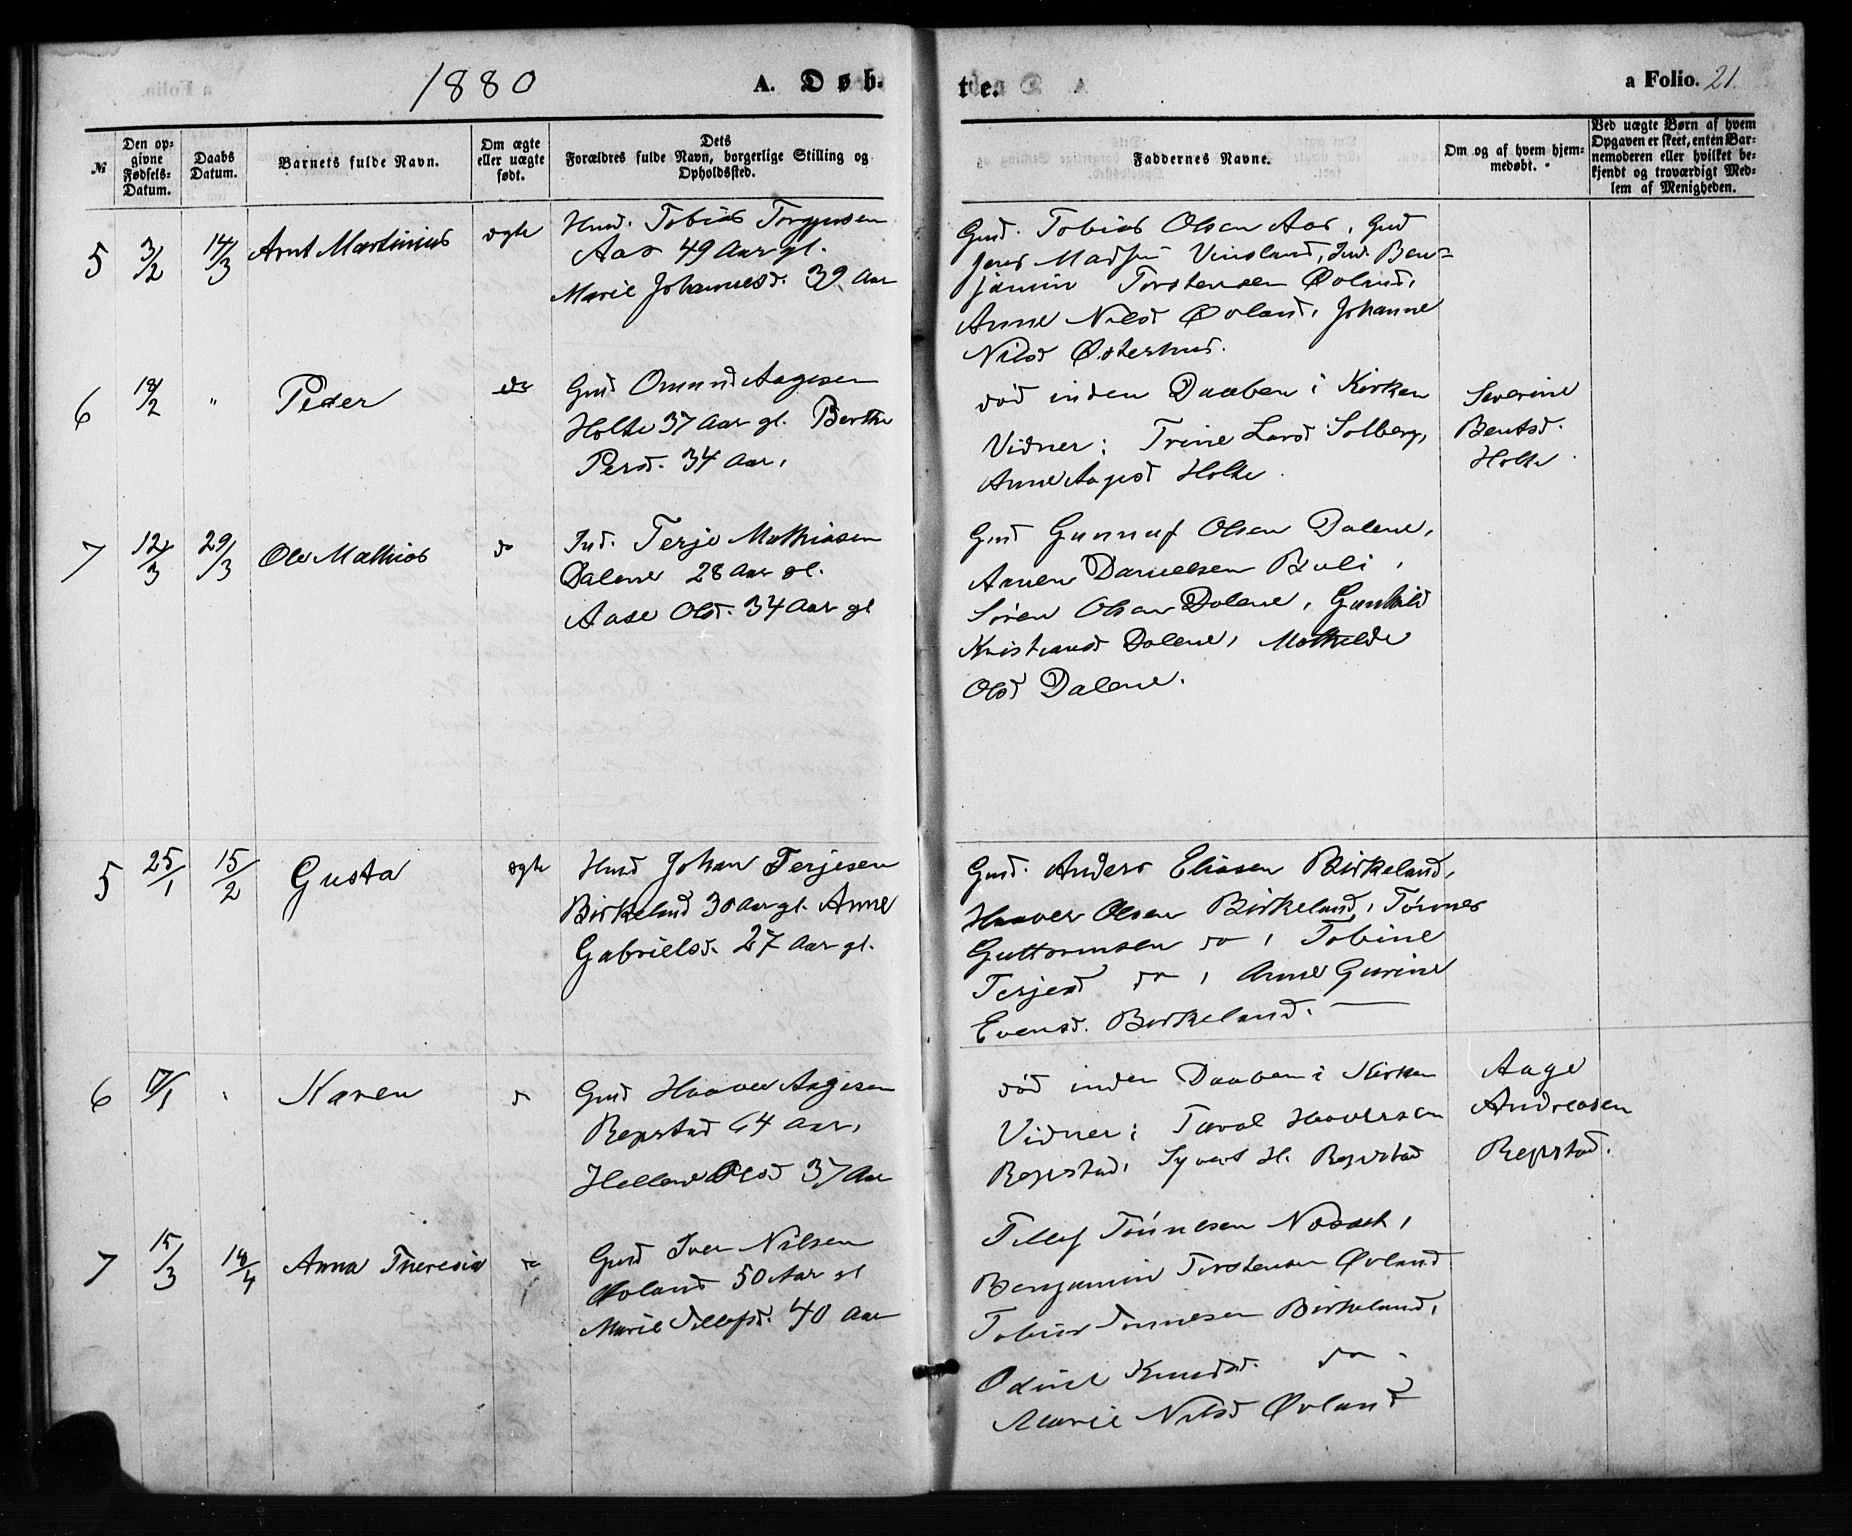 1880
A. Døb-
te.
a Folio. 21.
№
Den op-
givne
Fødsels-
Datum.
Daabs
Datum.
Barnets fulde Navn.
Om ægte
eller uægte
født.
Dets
Forældres fulde Navn, borgerlige Stilling og
Opholdssted.
Faddernes Navne.
Om og af hvem hjem-
medøbt.
Ved uægte Børn af hvem
Opgaven er skeet, enten Bar-
nemoderen eller hvilket be-
kjendt og troværdigt Med-
lem af Menigheden.
5 3/2 14/3 Arnt Martinius ægte
Husm. Tobias Torgusen
Aas 49 Aar gl.
Marie Johannesd. 39 Aar
Gmd. Tobias Olsen Aas, Gmd
Jens Madsen Vinsland, Ind. Ben=
jamin Torstensen Øvland,
Anne Nilsd Øvland, Johanne
Nilsd Østerhus.
6 18/2 " Peder do
Gmd Omund Aagesen
Holte 37 Aar gl. Berthe
Persd. 34 Aar,
död inden Daaben i Kirken
Vidner: Trine Larsd Solberg,
Anne Aagesd Holte.
Severine
Bentsd.
Holte.
7 12/3 29/3 Ole Mathias do
Ind. Terje Mathiasen
Dalene 28 Aar gl.
Aase Olsd. 34 Aar gl
Gmd Gunnuf Olsen Dalene,
Aanen Danielsen Buli,
Søren Olsen Dalene, Gunhild
Kristiansd Dalene, Mathilde
Olsd Dalene.
5 25/1 15/2 Gusta ægte
Husmd Johan Terjesen
Birkeland 30 Aar gl. Anne
Gabrielsd. 27 Aar gl.
Gmd. Anders Eliasen Birkeland,
Haaver Olsen Birkeland, Tønnes
Guttormsen do, Tobine
Terjesd do, Anne Gurine
Evensd. Birkeland.
6 17/1 " Karen do
Gmd Haaver Aagesen
Repstad 64 Aar,
Hellene Olsd 37 Aar
död inden Daaben i Kirken
Vidner: Taral Haaversen
Repstad, Syvert H. Repstad
Aage
Andreasen
Repstad.
7 15/3 18/4 Anna Theresia do
Gmd Iver Nilsen
Øvland 50 Aar gl
Marie Tellefsd. 40 Aar
Tellef Tønnesen Nesset,
Benjamin Torstensen Øvland
Tobias Tønnesen Birkeland,
Knudsd. do.
Marie Nilsd Øvland